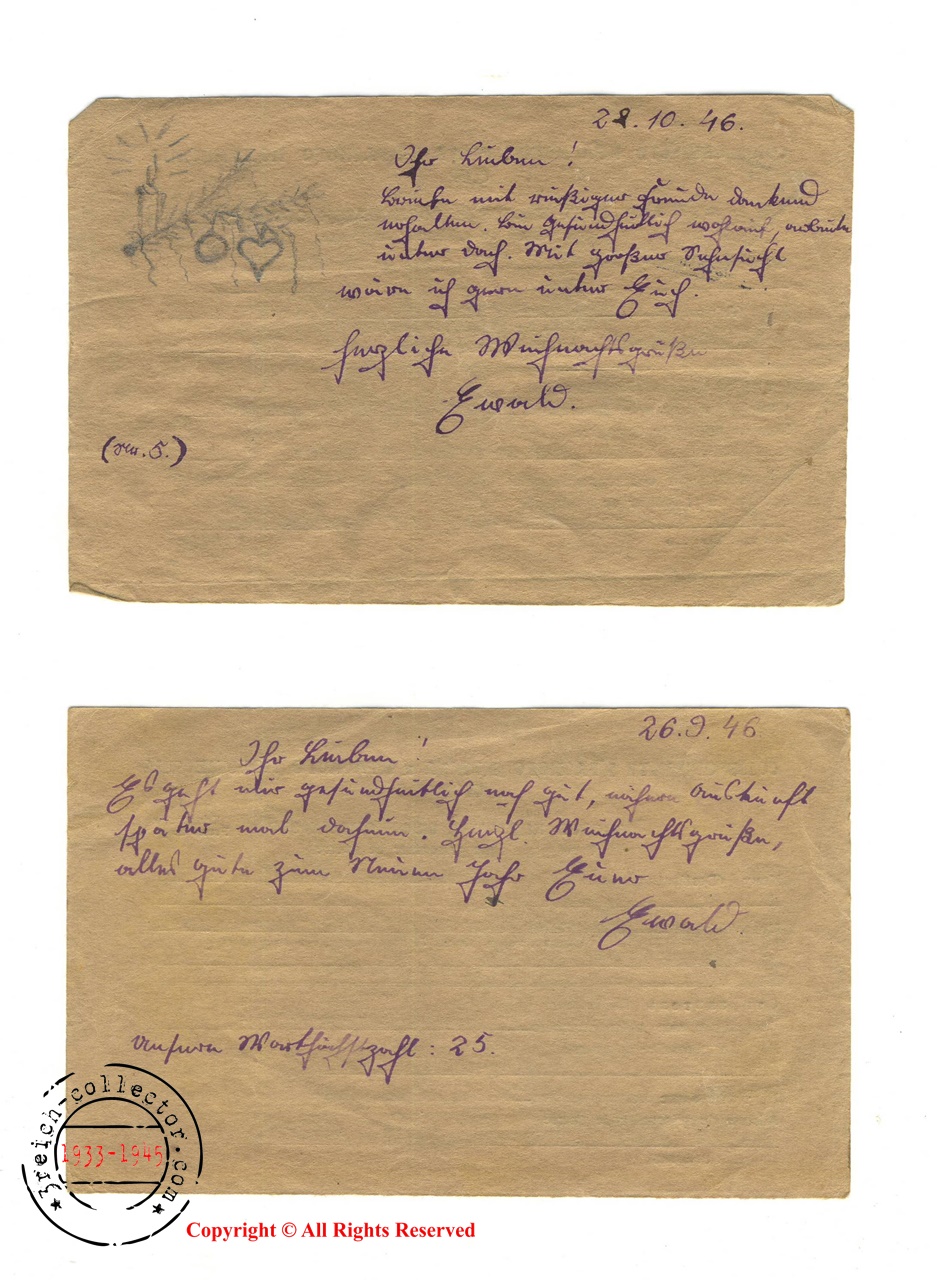 28.10.46.
Ihr Lieben!
Briefe mit riesiger Freude dankend
erhalten. Bin gesundheitlich wohlauf, arbeite
unter Dach. Mit großer Sehnsucht
wäre ich gern unter Euch.
Herzliche Weihnachtsgrüße
Ewald.
(Nr. 5.)
26.9.46
Ihr Lieben!
Es geht mir gesundheitlich noch gut, nähere Auskunft
später mal daheim. Herzl. Weihnachtsgrüße,
alles gute zum Neuen Jahr Euer
Ewald.
Worthöchstzahl: 25.
3reich-collector.com
1933-1945
Copyright © All Rights Reserved